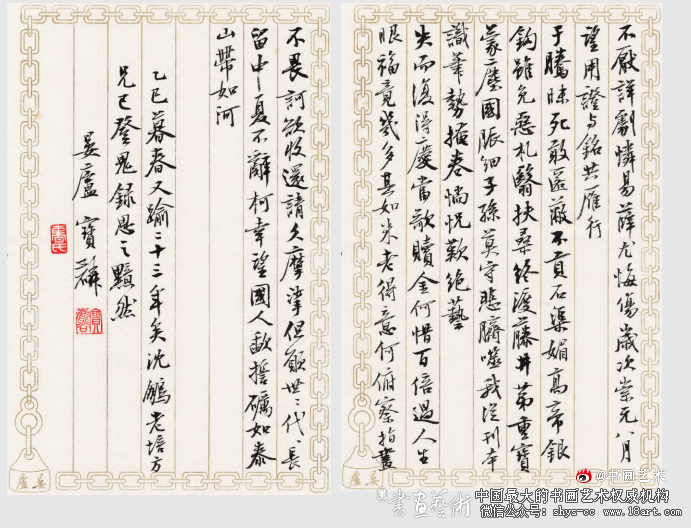 不厭詳劇憐易薛尤悔傷歲次崇元八月
望用證与銘共雁行
于騰昧死敢匿蔽不貢石渠媚高帝銀
鈎雖免惡札翳扶桑終渡藤井第重寶
蒙塵國賑細子孫莫守悲臍噬我從刊本
識筆勢掩卷惝怳歎絕藝
失而復得慶當歌贖金何惜百倍過人生
眼福竟幾多其如米老得意何俯察指畫
不畏訶欲收還請久摩挲但願世〻代〻長
留中夏不辭柯幸望國人歃誓礪如泰
山帶如河
乙巳暮春又踰二十三年矣沈鵬老培方
兄已登鬼錄思之黯然
晏廬寶麟
@书画艺术
書畫藝術
中国最大的书画艺术权威机构
微信公众号：shys-china www.18art.com